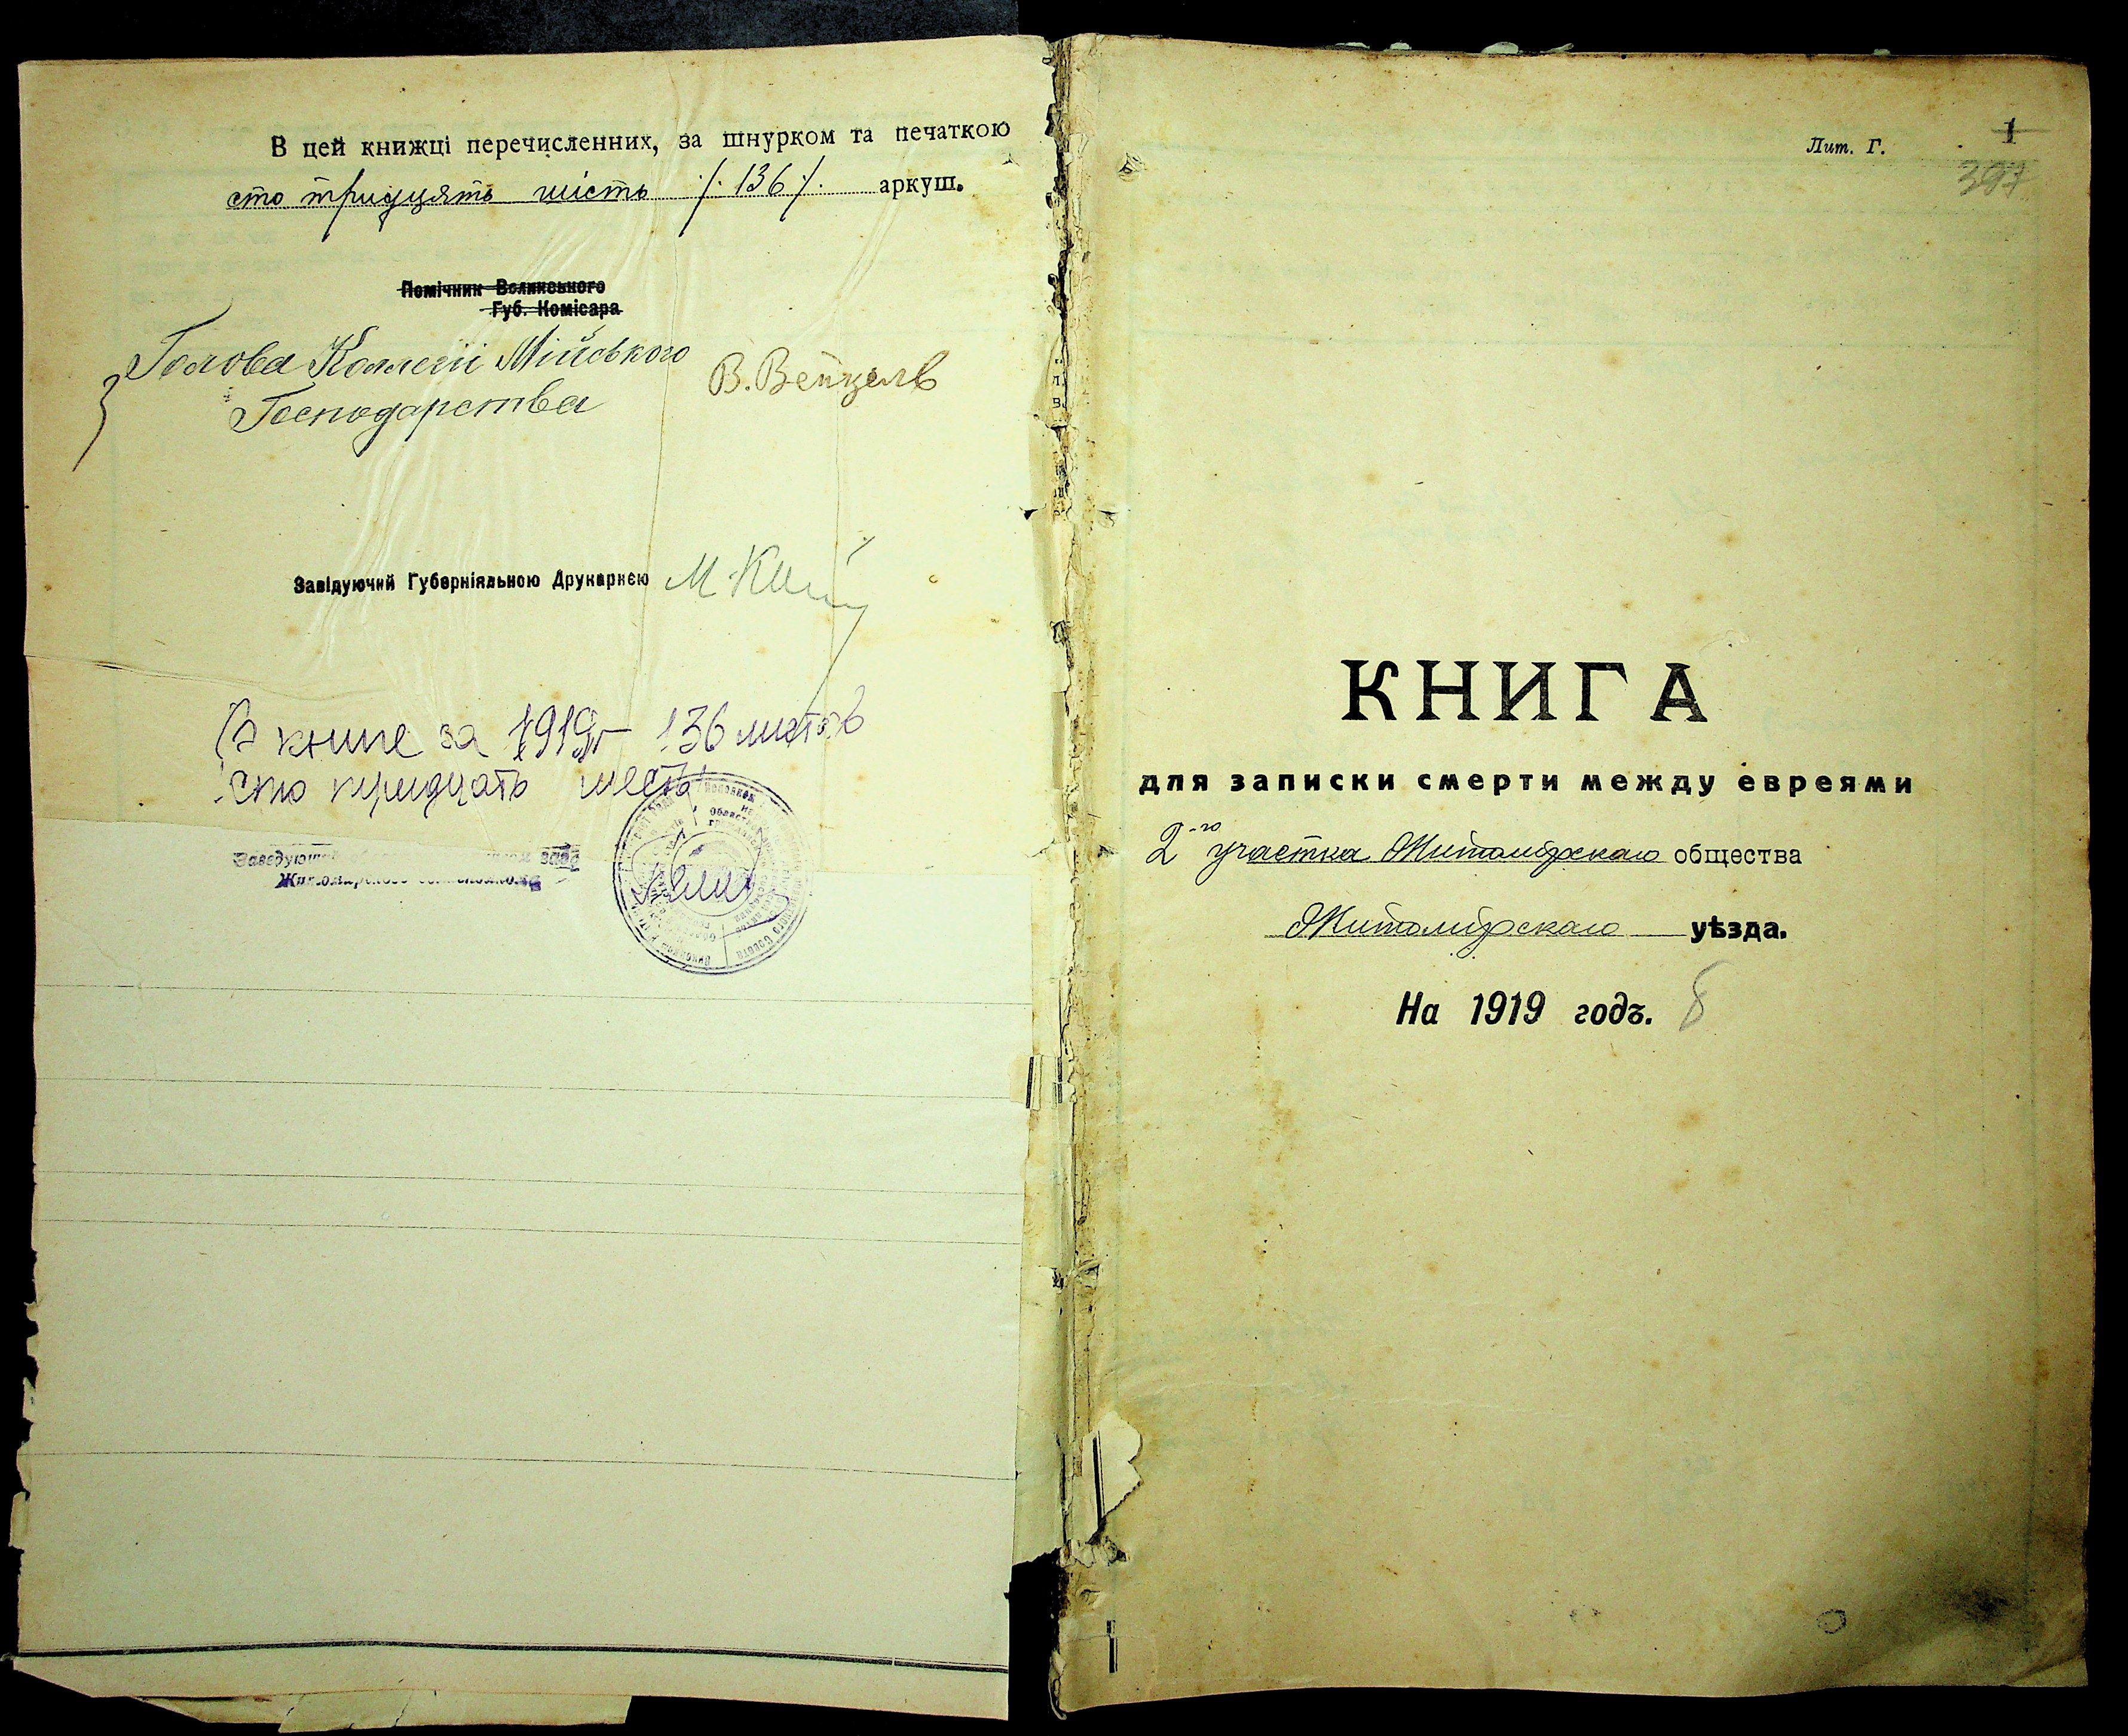 В цей книжці перечисленних, за шнурком та печаткою
сто тридцять шість /. 136 /. аркуш.
Помічник Волинського
Губ. Комісара
Голова Колегії Міського
Господарства
В. Венцель
Завідуючий Губерніяльною Друкарнею М
В книге за 1919г 136 листов
сто тридцать шесть
Заведующий
Лит. Г.
1
397
КНИГА
для записки смерти между евреями
2-го участка Житомірскаго общества
Житомірскаго уѣзда.
На 1919 годъ.